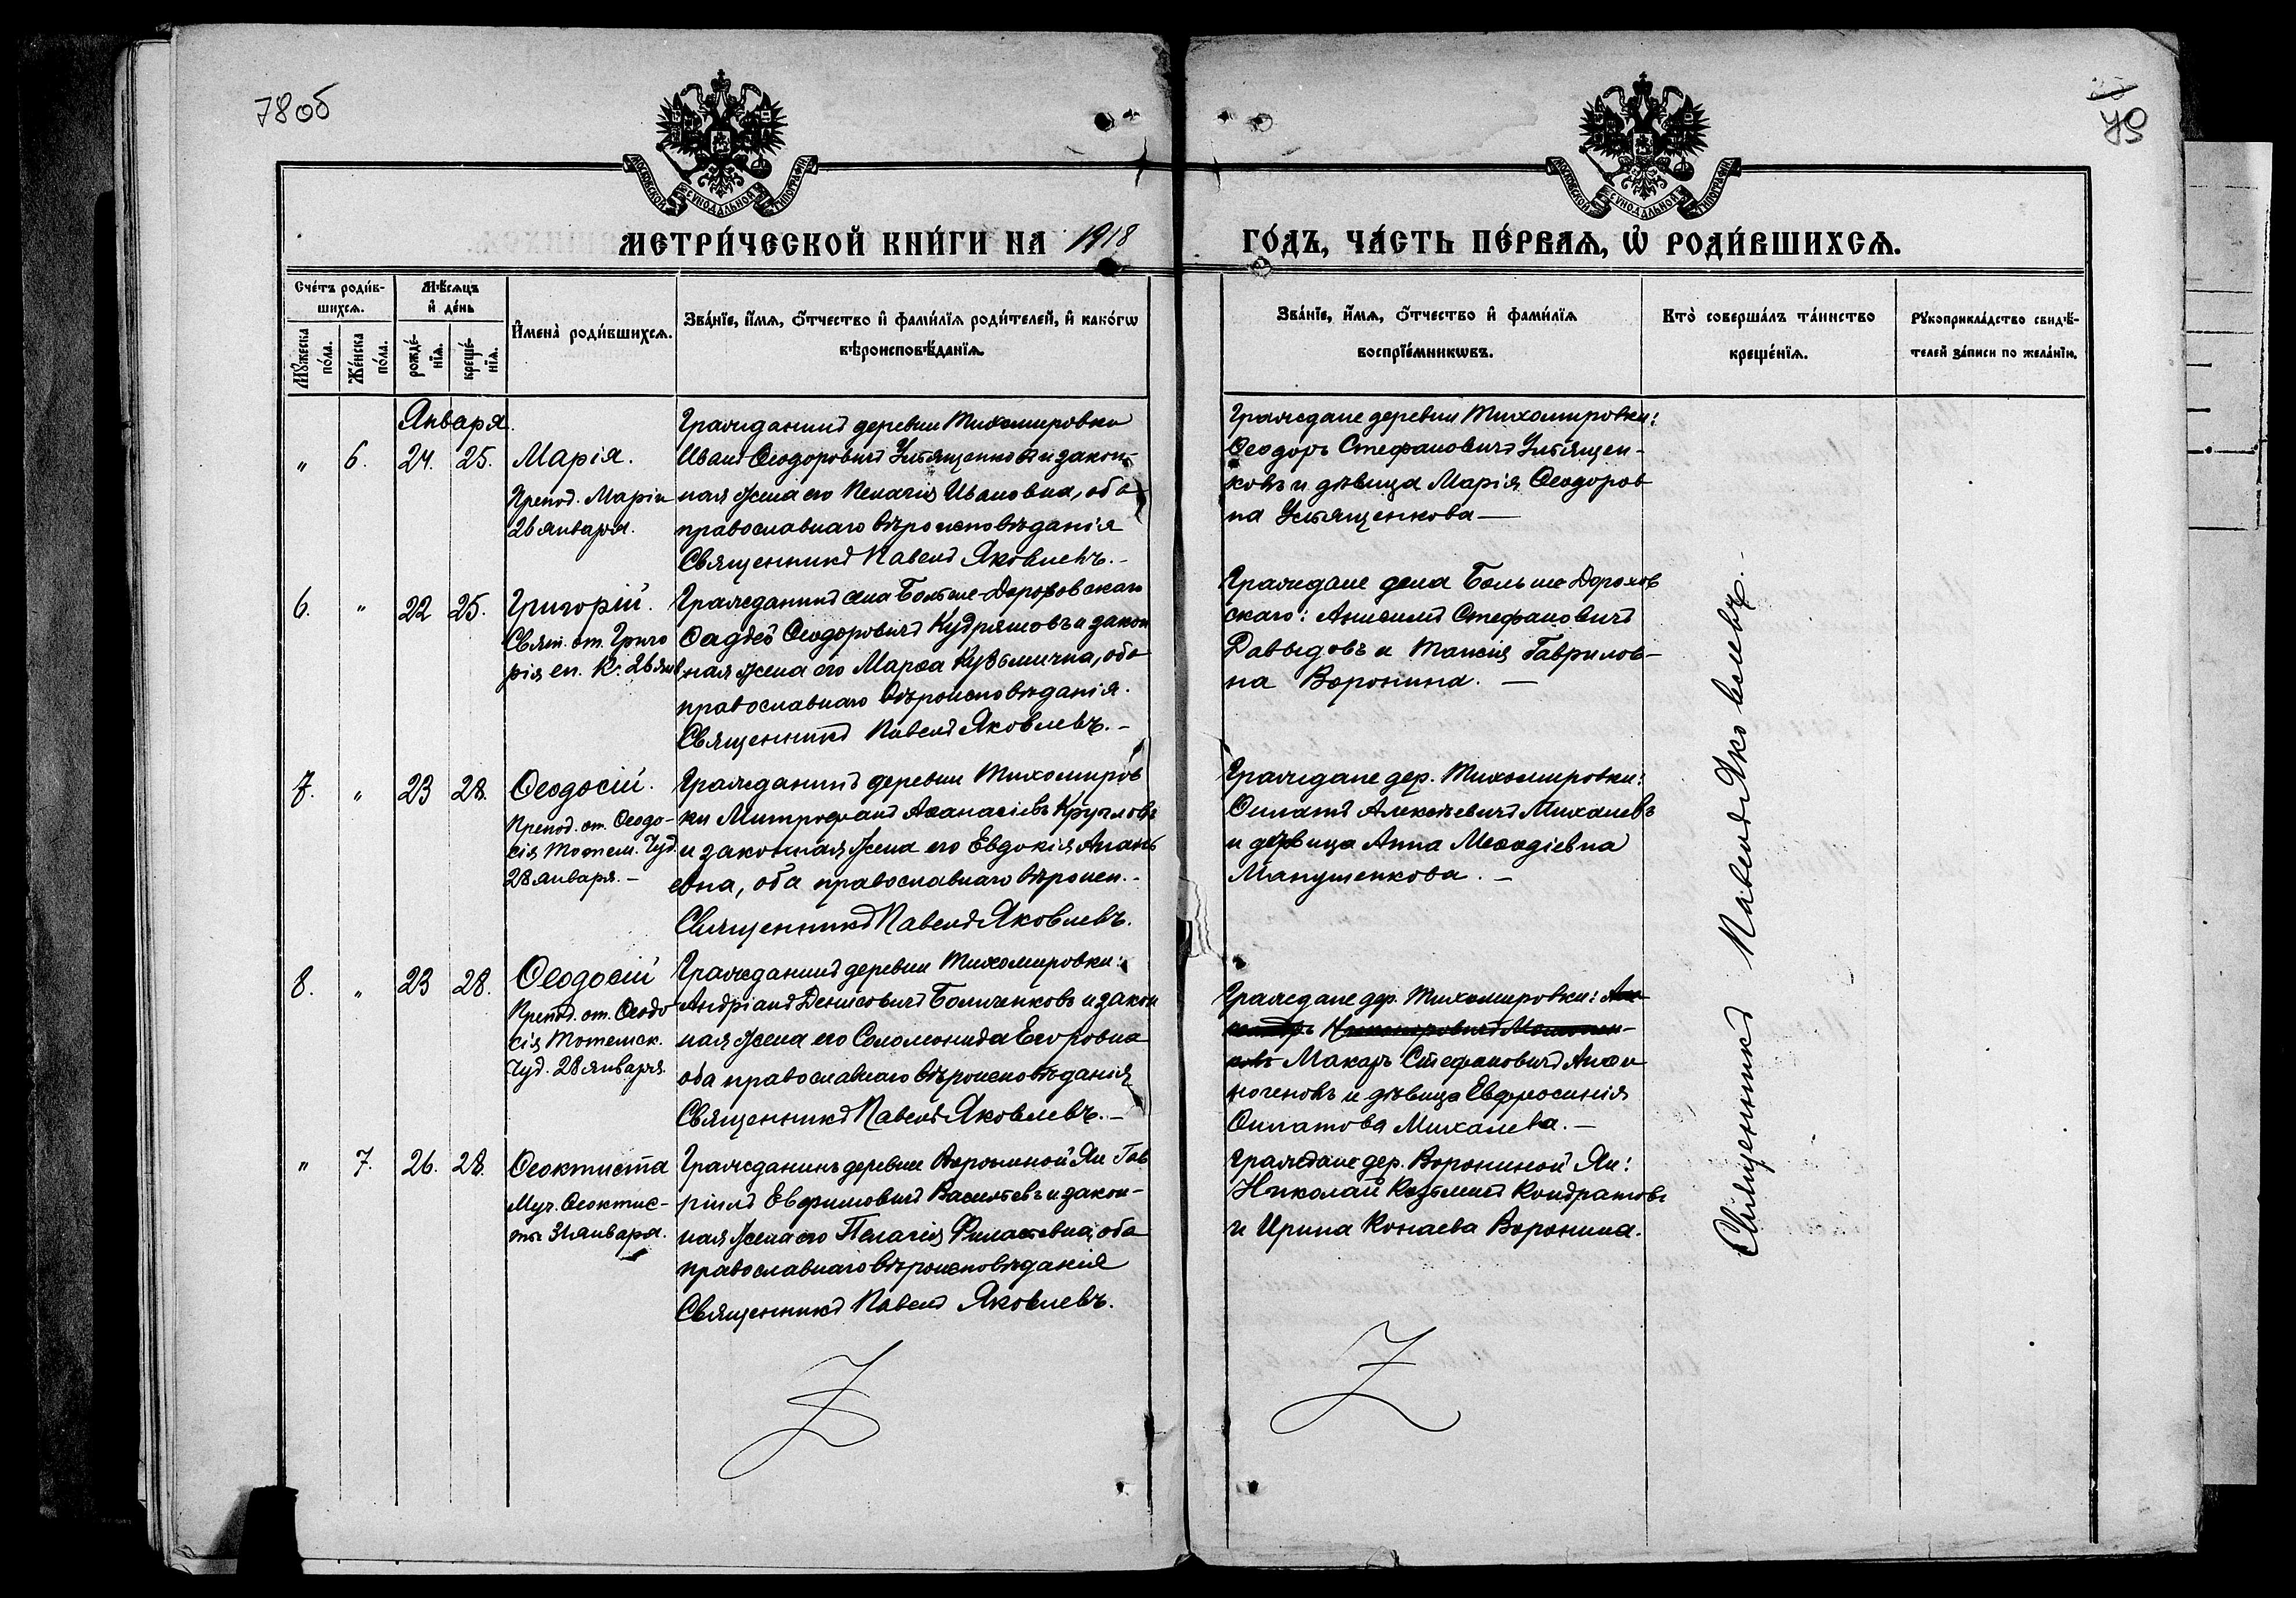 78 об
79
МОСКОВСКОЙ СѴНОДАЛЬНОЙ ТИПОГРАФІИ
МОСКОВСКОЙ СѴНОДАЛЬНОЙ ТИПОГРАФІИ
МЕТРИ́ЧЕСКОЙ КНИ́ГИ НА 1918
ГО́ДЪ, ЧА́СТЬ ПЕ́РВАѦ, Ѡ РОДИ́ВШИХСѦ.
Сче́тъ роди́в-
шихсѧ.
Мꙋ́жеска по́ла.
Же́нска по́ла.
Мѣ́сѧцъ
и҆ де́нь
рожде́нїѧ.
креще́нїѧ.
И҆мена̀ роди́вшихсѧ.
Зва́нїе, и҆́мѧ, ѻ҆́тчество и҆ фами́лїѧ роди́телей, и҆ како́гѡ
вѣроисповѣ́данїѧ.
Зва́нїе, и҆́мѧ, ѻ҆́тчество и҆ фами́лїѧ
воспрїе́мникѡвъ.
Кто̀ соверша́лъ та́инство
креще́нїѧ.
Рꙋкоприкла́дство свидѣ́-
телей за́писи по жела́нїю.
Января.
" 6. 24. 25. Марія.
Препод. Маріи
26 января.
Гражданинъ деревни Тихомировки
Иванъ Ѳеодоровичъ Устященковъ и закон-
ная жена его Пелагія Ивановна, оба
православнаго вѣроисповѣданія
Священникъ Павелъ Яковлевъ.-
Граждане деревни Тихомировки:
Ѳеодоръ Стефановичъ Устящен-
ковъ и дѣвица Марія Ѳеодоров
на Устященкова —
6. " 22 25. Григорій.
Свят. от. Григо
рія еп. К. 26 янв
Гражданинъ села Больше-Дороховскаго
Ѳаддей Ѳеодоровичъ Кудряшовъ и закон
ная жена его Марѳа Кузьмична, оба
православнаго вѣроисповѣданія.
Священникъ Павелъ Яковлевъ.-
Граждане села Больше Дорохов
скаго: Анисимъ Стефановичъ
Давыдовъ и Таисія Гаврилов-
на Воронина. —
7. " 23 28. Ѳеодосій.
Препод. от. Ѳеодо-
сія Тотем. Чуд.
28 января. -
Гражданинъ деревни Тихомиров
ки Митрофанъ Аѳанасіевъ Кругловъ
и законная жена его Евдокія Анань
евна, оба православнаго вѣроисп.-
Священникъ Павелъ Яковлевъ.
Граждане дер. Тихомировки:
Филатъ Алексѣевичъ Михалевъ
и дѣвица Анна Меѳодіевна
Манушенкова. —
8. " 23 28. Ѳеодосій
Препод. от. Ѳеодо
сія Тотемск.
Чуд. 28 января.
Гражданинъ деревни Тихомировки:
Андріанъ Денисовичъ Боличенковъ и закон
ная жена его Соломонида Егоровна
оба православнаго вѣроисповѣданія
Священникъ Павелъ Яковлевъ.—
Граждане дер. Тихомировки:
Макаръ Стефановичъ Анфи
ногеновъ и дѣвица Евфросинія
Филатова Михалева. —
" 7. 26. 28. Ѳеоктиста
Муч. Ѳеоктис-
ты 31 января.
Гражданинъ деревни Ворониной Яи Гав
ріилъ Евфимовичъ Васильевъ и закон-
ная жена его Пелагія Филатьевна, оба
православнаго вѣроисповѣданія
Священникъ Павелъ Яковлевъ.
Граждане дер. Ворониной Яи:
Николай Козьмичъ Кондратовъ
и Ирина Конаева Воронина.
Священникъ Павелъ Яковлевъ.